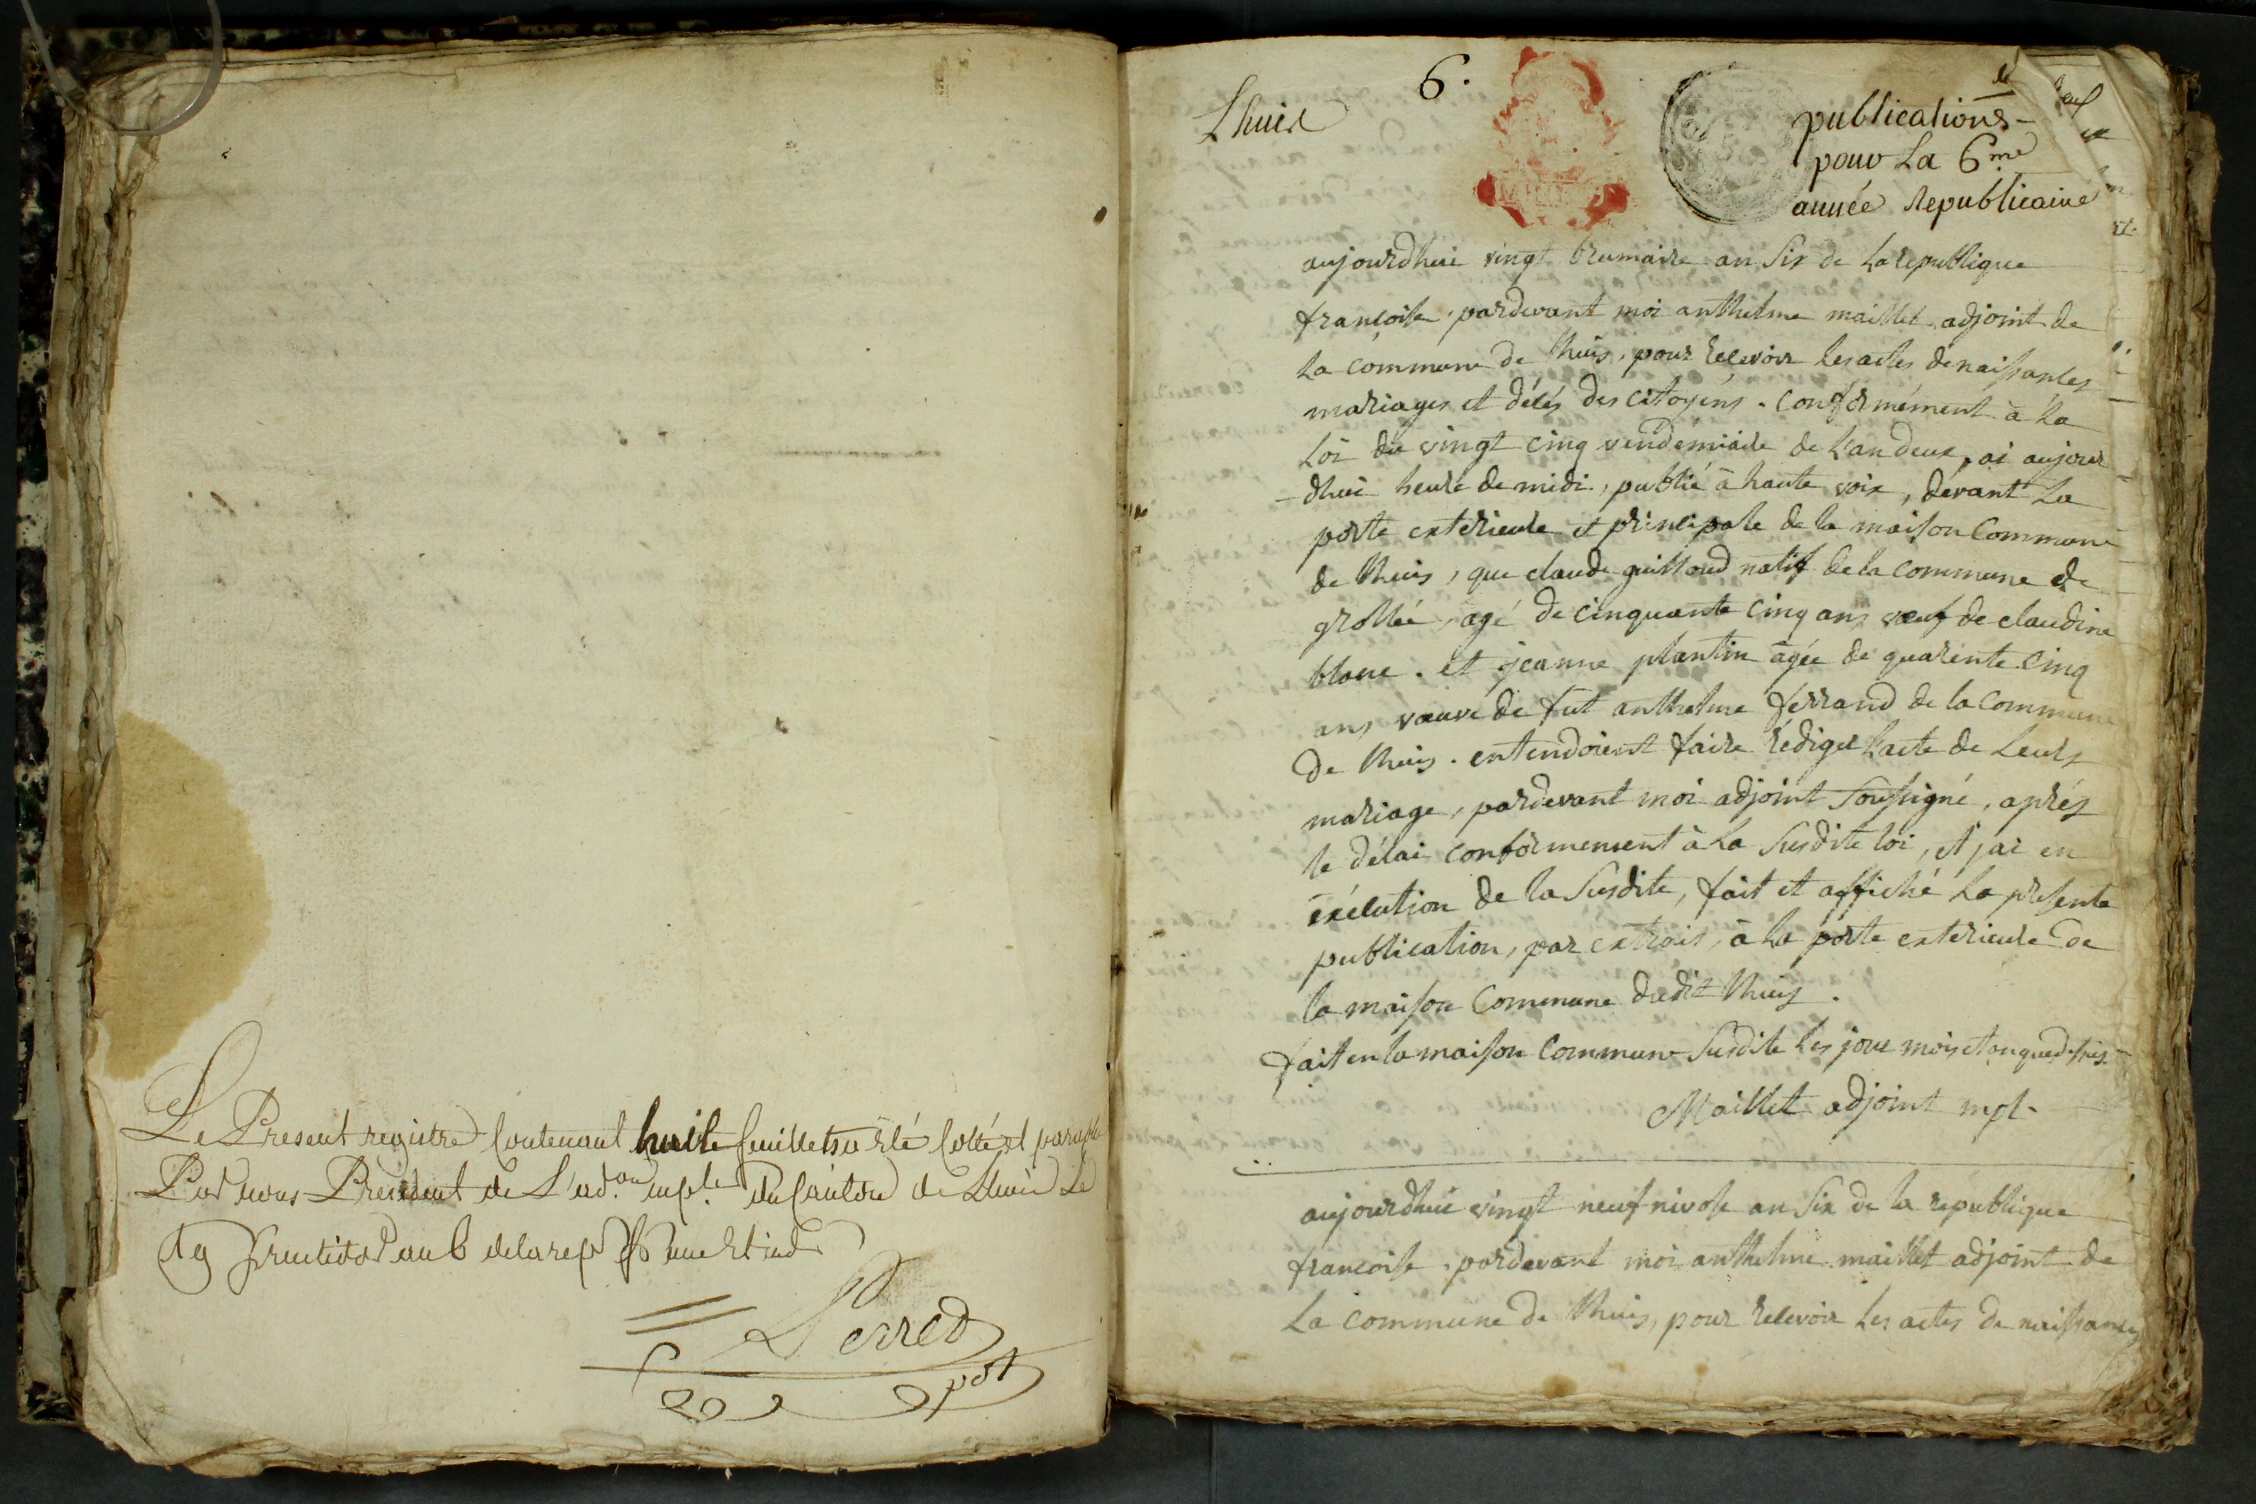 Le Present registre Contenant huite feuillets a été Cotté et paraphé
Par nous President de L'ad.on mple du Canton de Lhuis Le
fructidor an 6 de la rep. une et ind.
Perred
pdt
Lhuis
6.
publications
pour La 6.me
année Republicaine
aujourdhui vingt brumaire an Six de La republique
françoise, pardevant moi anthelme maillet adjoint de
La commune de lhuis, pour recevoir les actes de naissances
mariages et décés des citoyéns. conformément à La
Loi du vingt cinq vendémiaire de L'an deux, ai aujour
-dhui heure de midi, publié à haute voix, devant La
porte exterieure et principale de la maison Commune
de lhuis, que claude guilloud natif de la commune de
groslée, agé de cinquante cinq ans vœuf de claudine
blanc. et jeanne plantin agée de quarente cinq
ans vœuve de fut anthelme ferrand de la commune
de lhuis. entendoient faire rédiger l'acte de Leurs
mariage, pardevant moi adjoint Soussigné, aprés
le délai conformement à La Susdite loi, et j'ai en
exécution de la Susdite, fait et affiché La présente
publication, par extrait, à La porte exterieure de
la maison Commune dudit lhuis.
fait en la maison Commune Susdite Les jour mois et an que dessus
Maillet adjoint mpl.
aujourdhui vingt neuf nivose an Six de la république
francoise. pardevant moi anthelme maillet adjoint de
La commune de lhuis, pour recevoir Les actes de naissances